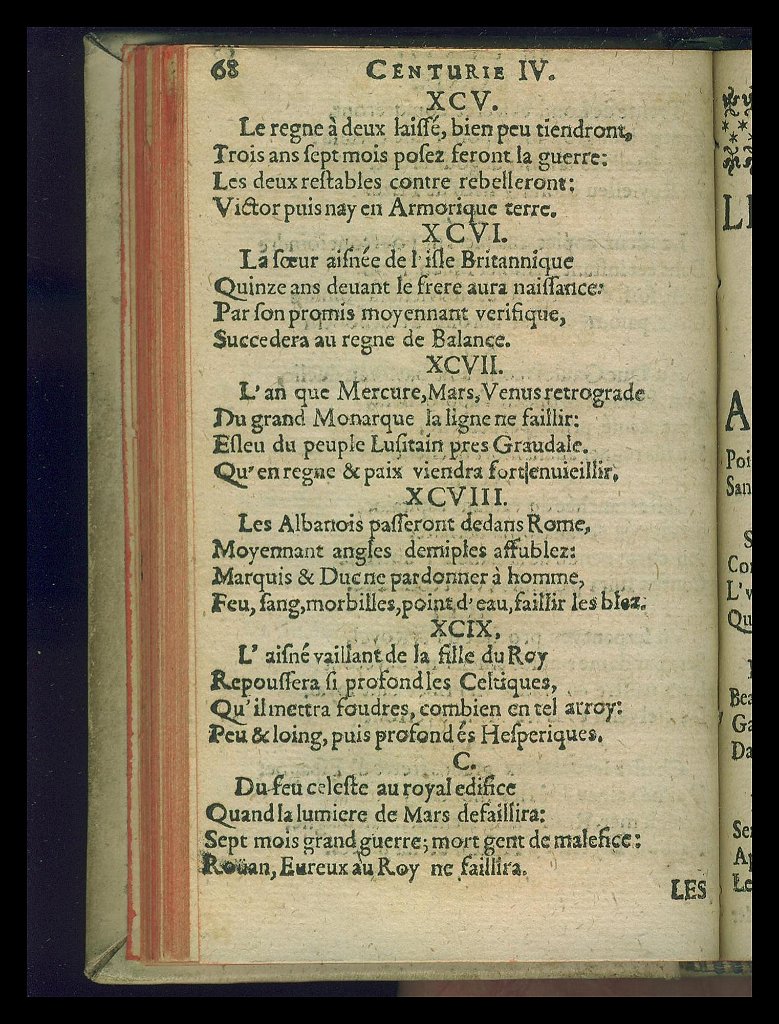 68 CENTURIE IV.
XCV.
Le regne à deux laiſſé, bien peu tiendront,
Trois ans ſept mois poſez feront la guerre:
Les deux reſtables contre rebelleront:
Victor puis nay en Armorique terre.
XCVI.
La ſœur aiſnée de l'iſle Britannique
Quinze ans deuant le frere aura naiſſance:
Par ſon promis moyennant verifique,
Succedera au regne de Balance.
XCVII.
L'an que Mercure, Mars, Venus retrograde
Du grand Monarque la ligne ne faillir:
Eſleu du peuple Luſitain pres Graudale.
Qu'en regne & paix viendra fort enuieillir,
XCVIII.
Les Albanois paſſeront dedans Rome,
Moyennant angles demiples affublez:
Marquis & Duc ne pardonner à homme,
Feu, ſang, morbilles, point d'eau, faillir les blez.
XCIX.
L'aiſné vaillant de la fille du Roy
Repouſſera ſi profond les Celtiques,
Qu'il mettra foudres, combien en tel arroy:
Peu & loing, puis profond és Heſperiques.
C.
Du feu celeſte au royal edifice
Quand la lumiere de Mars defaillira:
Sept mois grand guerre; mort gent de malefice:
Roüan, Eureux au Roy ne faillira.
LES
LI
A
Poi
San
S
Con
L'v
Qu
Bea
Ga
Da
Ser
Ap
Le